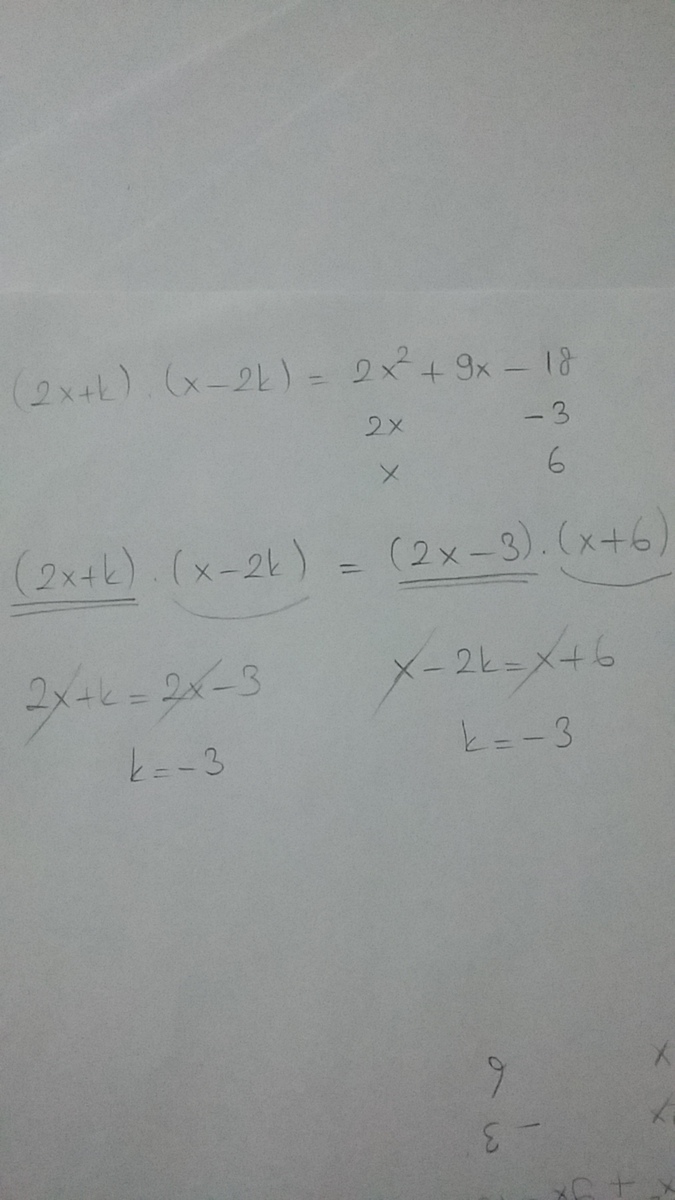 (2x+k).(x-2k) = 2x²+9x-18
2x -3
x 6
(2x+k).(x-2k) = (2x-3).(x+6)
2x+k=2x-3 x-2k=x+6
k=-3 k=-3
x 6
-3